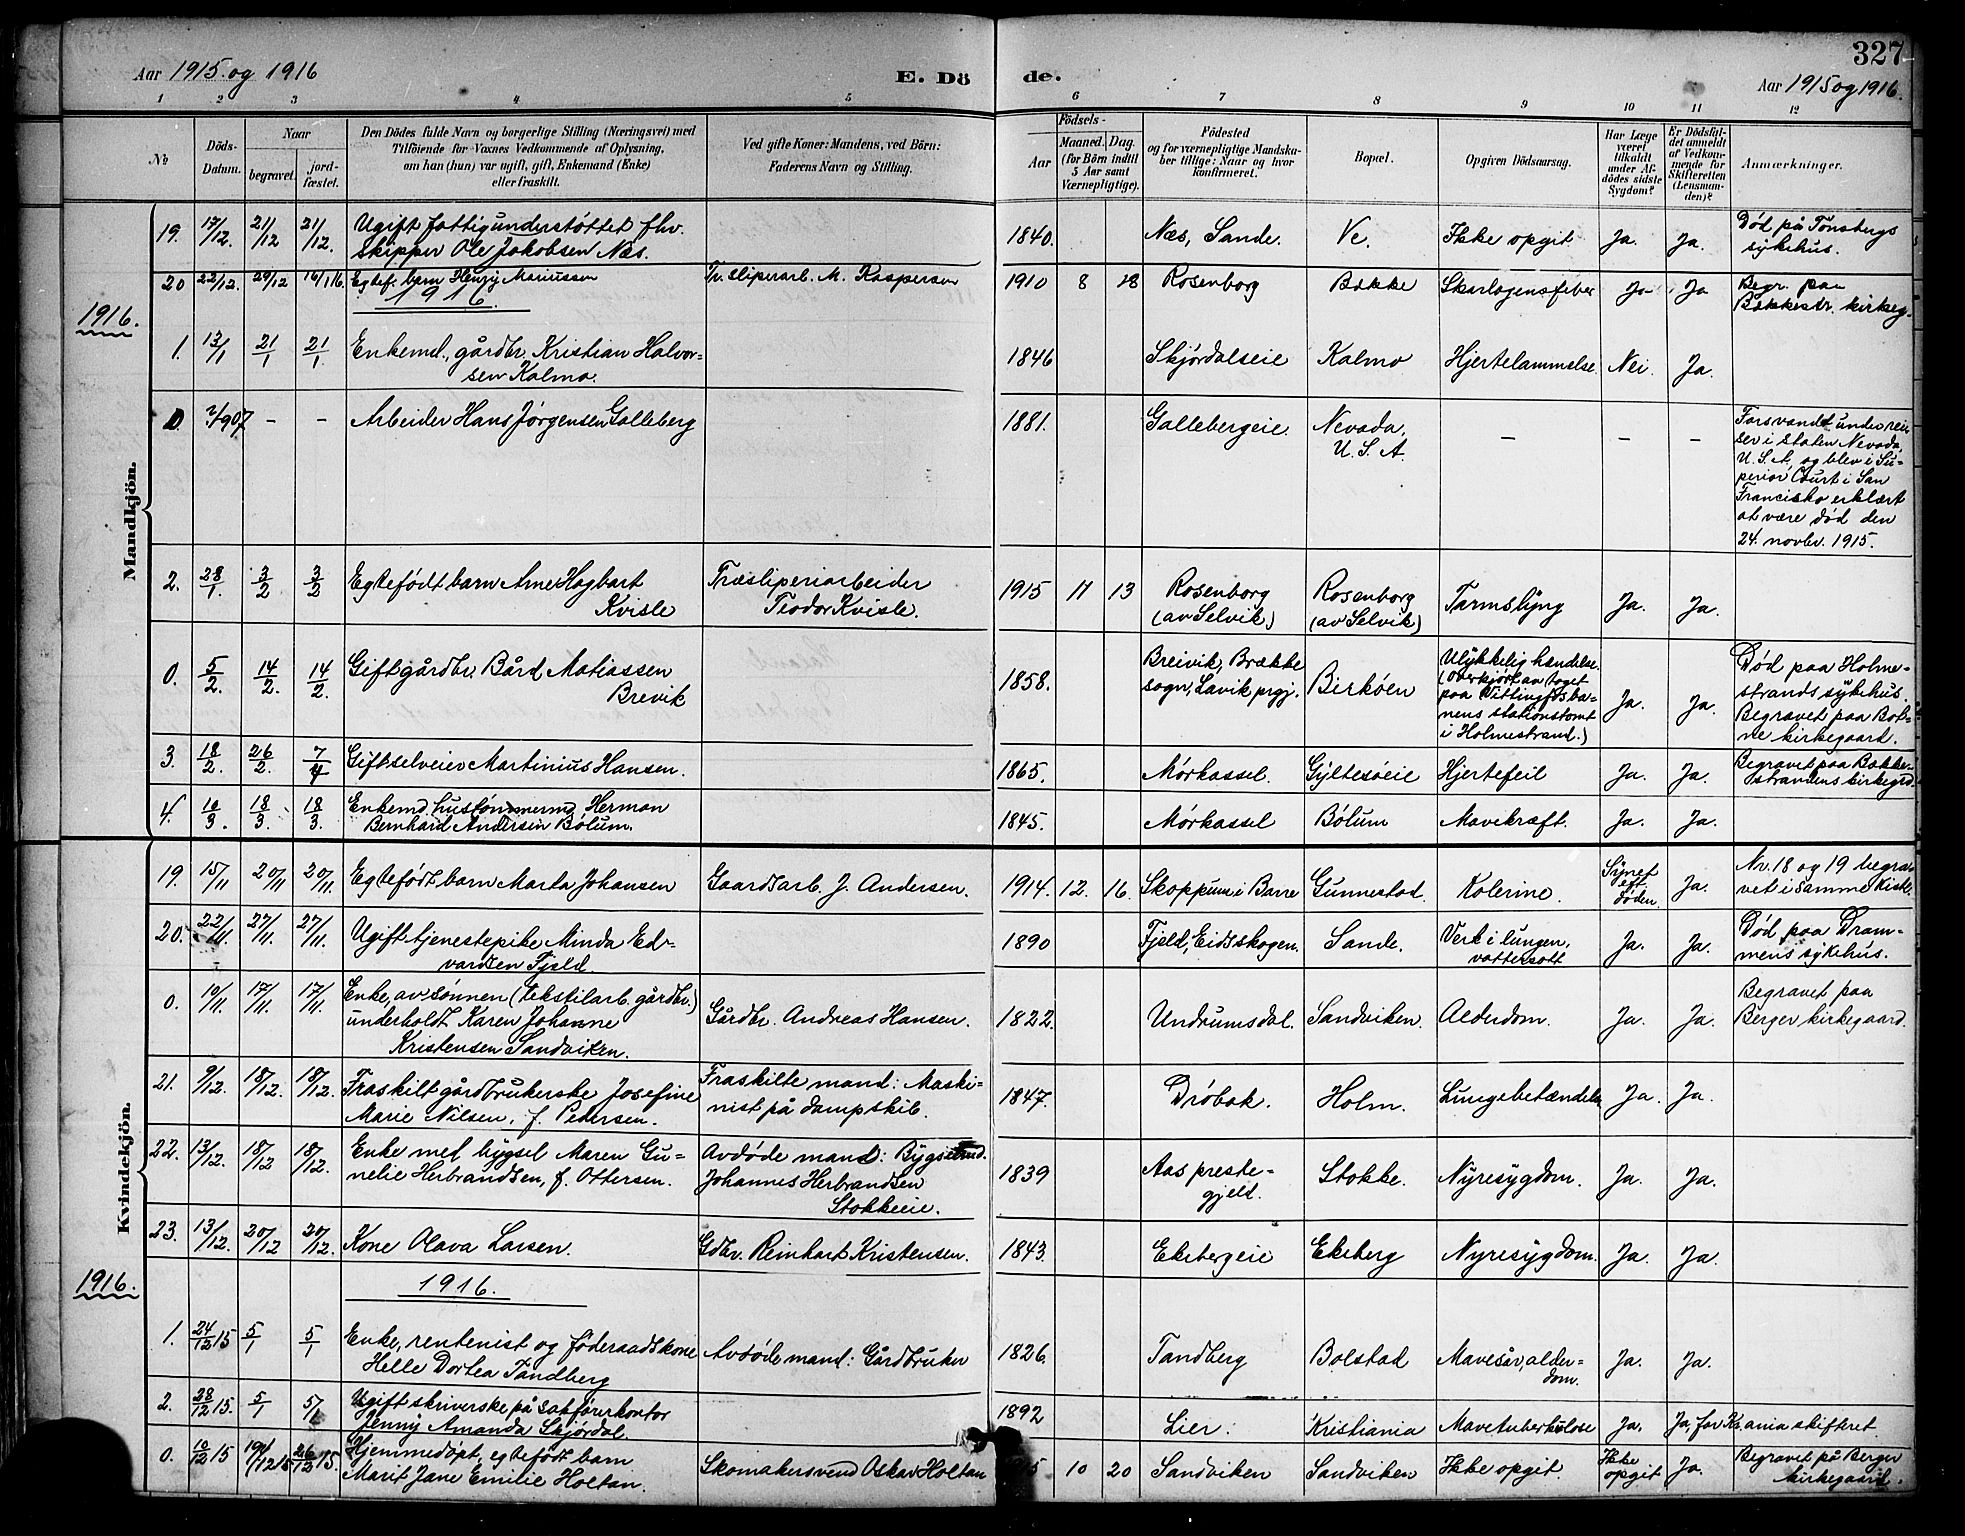 327
Aar 1915 og 1916 E. Dö de. Aar 1915 og 1916.
1 2 3 4 5 6 7 8 9 10 11 12
No
Döds-Datum.
Naar begravet. jordfæstet.
Den Dödes fulde Navn og borgerlige Stilling (Næringsvei) med
Tilföiende for Voxnes Vedkommende af Oplysning,
om han (hun) var ugift, gift, Enkemand (Enke)
eller fraskilt.
Ved gifte Koner: Mandens, ved Börn:
Faderens Navn og Stilling.
Födsels-
Aar Maaned. Dag.
(for Börn indtil
5 Aar samt
Værnepligtige).
Födested
og for værnepligtige Mandskaber tillige: Naar og hvor
konfirmeret.
Bopæl.
Opgiven Dödsaarsag.
Har Læge været tilkaldt under Afdödes sidste Sygdom?
Er Dödsfaldet anmeldt af Vedkommende for Skifteretten (Lensmanden)?
Anmærkninger.
Mandkjön.
19. 17/12. 21/12 21/12. Ugift fattigunderstøttet fhv. Skipper Ole Jakobsen Næs. 1840. Næs, Sande. Ve. Ikke opgit Ja. Ja. Død på Tønsbergs sykehus.
20 22/12. 29/12 16/1 16. Egtef. barn Henry Mariussen Tr.sliperarb. M. Kaspersen 1910 8 28 Rosenborg Bække Skarlagensfeber Ja Ja Begr. paa Bækkestr. kirkeg.
1916.
1916.
1. 13/1 21/1 21/1. Enkemd., gårdbr. Kristian Halvorsen Kalmo. 1846 Skjørdalseie Kalmo Hjertelammelse. Nei. Ja.
0. /1907 – – Arbeider Hans Jørgensen Galleberg 1881. Gallebergeie. Nevada, U.S.A. – – – Forsvandt under reiser i staten Nevada, U.S.A, og blev i Superior Court i San Francisko erklært at være død den 24. novbr. 1915.
2. 28/1. 3/2 3/2 Egtefødt barn Arne Hagbart Kvisle Træsliperiarbeider Teodor Kvisle. 1915 11 13 Rosenborg (av Selvik) Rosenborg (av Selvik) Tarmslyng Ja. Ja.
0. 5/2. 14/2. 14/2. Gift gårdbr. Bård Matiassen Brevik 1858. Breivik, Brække sogn, Lavik prgj. Birkøen Ulykkelig hændelse. (Overkjørt av toget paa Vittingfosbanens stationstomt i Holmestrand.) Ja. Ja. Død paa Holmestrands sykehus. Begravet paa Botne kirkegaard.
3. 18/2. 26/2. 7/4 Gift selveier Martinius Hansen. 1865. Mørkassel. Gyltesøeie Hjertefeil Ja. Ja. Begravet paa Bækkestrandens kirkegrd.
4. 10/3. 18/3. 18/3. Enkemd. hustømmermd. Herman Bernhard Andersen Bølum. 1845. Mørkassel Bølum Mavekræft. Ja. Ja.
Kvindekjön.
19. 15/11 20/11 20/11. Egtefødt barn Marta Johansen Gaardsarb. J. Andersen. 1914. 12. 16. Skoppum i Borre Gunnestad. Kolerine. Synet eft. døden. Ja. Nr. 18 og 19 begravet i samme kiste.
20. 22/11. 27/11. 27/11. Ugift tjenestepike Minda Edvardsen Fjeld. 1890 Fjeld, Eidsskogen. Sande. Verk i lungen, vattersott Ja. Ja. Død paa Drammens sykehus.
0. 10/11 17/11. 17/11. Enke, av sønnen (tekstilarb. gårdbr.) underholdt Karen Johanne Kristensen Sandviken. Gårdbr. Andreas Hansen. 1822. Undrumsdal. Sandviken. Alderdom. Ja. Ja. Begravet paa Berger kirkegaard.
21. 9/12. 18/12. 18/12. Fraskilt gårdbrukerske Josefine Marie Nilsen, f. Petersen. Fraskilte mand: Maskinist på dampskib. 1847. Drøbak. Holm. Lungebetændelse Ja. Ja.
22. 13/12. 18/12 18/12. Enke med bygsel Maren Gunelie Herbrandsen, f. Ottersen. Avdøde mand: Bygselmd. Johannes Herbrandsen Stokkeeie. 1839 Aas prestegjeld. Stokke. Nyresygdom. Ja. Ja.
23. 13/12. 20/12 20/12. Kone Olava Larsen. Gdbr. Reinhart Kristensen. 1843. Ekebergeie Ekeberg Nyresygdom. Ja. Ja.
1916.
1916.
1. 24/12 15 5/1 5/1 Enke, rentenist og føderaadskone Helle Dortea Tandberg Avdøde mand: Gårdbruker 1826. Tandberg Bolstad Mavesår, alderdom. Ja. Ja.
2. 28/12 15. 5/1 5/1 Ugift skriverske på sakførerkontor Jenny Amanda Skjørdal. 1892 Lier. Kristiania Mavetuberkulose Ja. Ja, for Kr.ania skifteret.
0. 10/12 15 19/12 15 26/12 15. Hjemmedøpt, egtefødt barn Marit Jane Emilie Holtan. Skomakersvend Oskar Holtan 10 20 Sandviken Sandviken Ikke opgit. Ikke opgit Ja. Begravet på Berger kirkegaard.